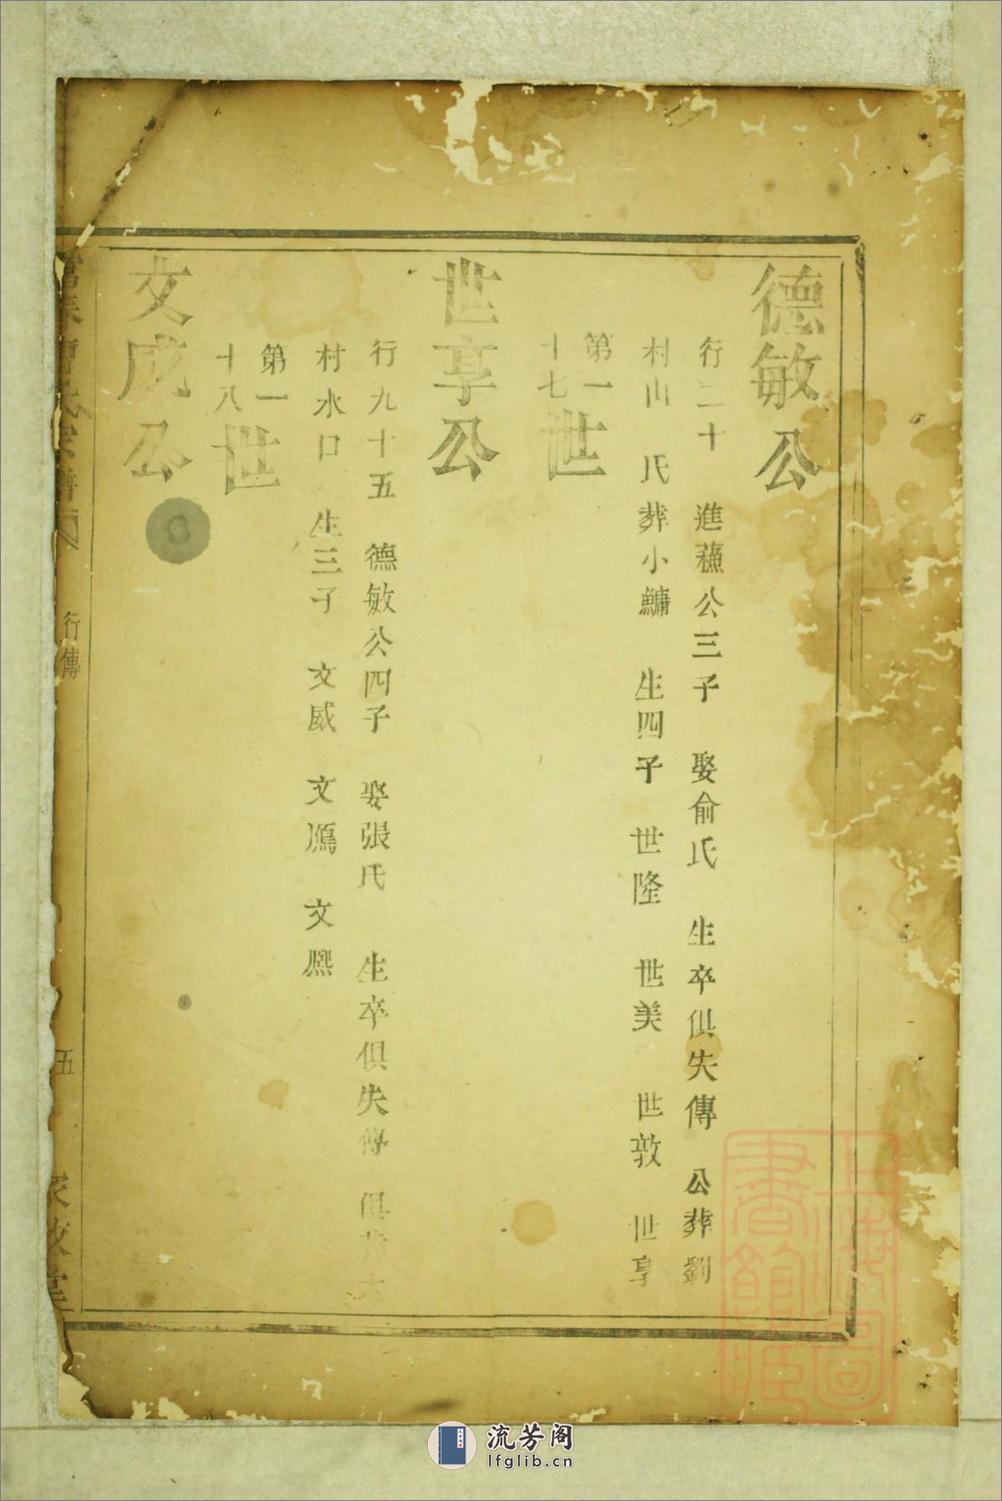 德敏公
行二十 進蘓公三子 娶俞氏 生卒俱失傳 公葬劉
村山 氏葬小鱅 生四子 世隆 世美 世敦 世享
第一
十七
世
世享公
行九十五 德敏公四子 娶張氏 生卒俱失傳 俱葬大
村水口 生三子 文威 文鳫 文熈
第一
十八
世
文成公
氏宗譜
行傳
五
敘堂
上海圖
書館藏
流芳阁
lfglib.cn